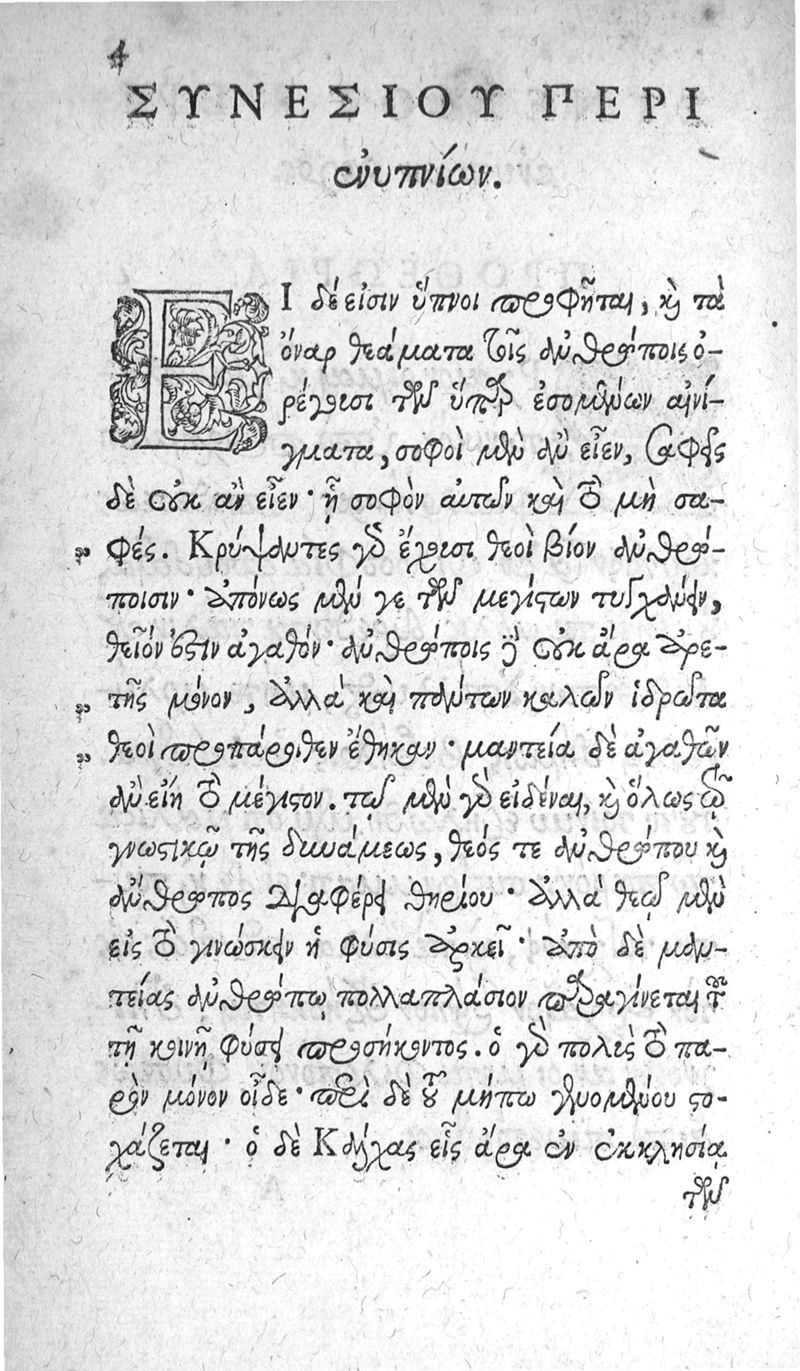 4
ΣΥΝΕΣΙΟΥ ΠΕΡΙ
ἐνυπνίων.
ΕΙ δέ εἰσιν ὕπνοι προφῆται, καὶ τὰ
ὄναρ θεάματα τοῖς ἀνθρώποις ὀ-
ρέγουσι τῶν ὕπαρ ἐσομένων αἰνί-
γματα, σοφοὶ μὲν ἂν εἶεν, σαφεῖς
δὲ οὐκ ἂν εἶεν· ἢ σοφὸν αὐτῶν καὶ τὸ μὴ σα-
„ φές. Κρύψαντες γὰρ ἔχουσι θεοὶ βίον ἀνθρώ-
ποισιν· ἀπόνως μέν γε τῶν μεγίστων τυγχάνειν,
θεῖόν ἐστιν ἀγαθόν· ἀνθρώποις δὲ οὐκ ἄρα ἀρε-
„ τῆς μόνον, ἀλλὰ καὶ πάντων καλῶν ἱδρῶτα
„ θεοὶ προπάροιθεν ἔθηκαν· μαντεία δὲ ἀγαθῶν
ἂν εἴη τὸ μέγιστον. τῷ μὲν γὰρ εἰδέναι, καὶ ὅλως τῷ
γνωστικῷ τῆς δυνάμεως, θεός τε ἀνθρώπου καὶ
ἄνθρωπος διαφέρει θηρίου· ἀλλὰ θεῷ μὲν
εἰς τὸ γινώσκειν ἡ φύσις ἀρκεῖ· ἀπὸ δὲ μαν-
τείας ἀνθρώπῳ πολλαπλάσιον παραγίνεται τοῦ
τῇ κοινῇ φύσει προσήκοντος. ὁ γὰρ πολὺς τὸ πα-
ρὸν μόνον οἶδε· περὶ δὲ τοῦ μήπω γενομένου στο-
χάζεται· ὁ δὲ Κάλχας εἷς ἄρα ἐν ἐκκλησίᾳ
τῶν